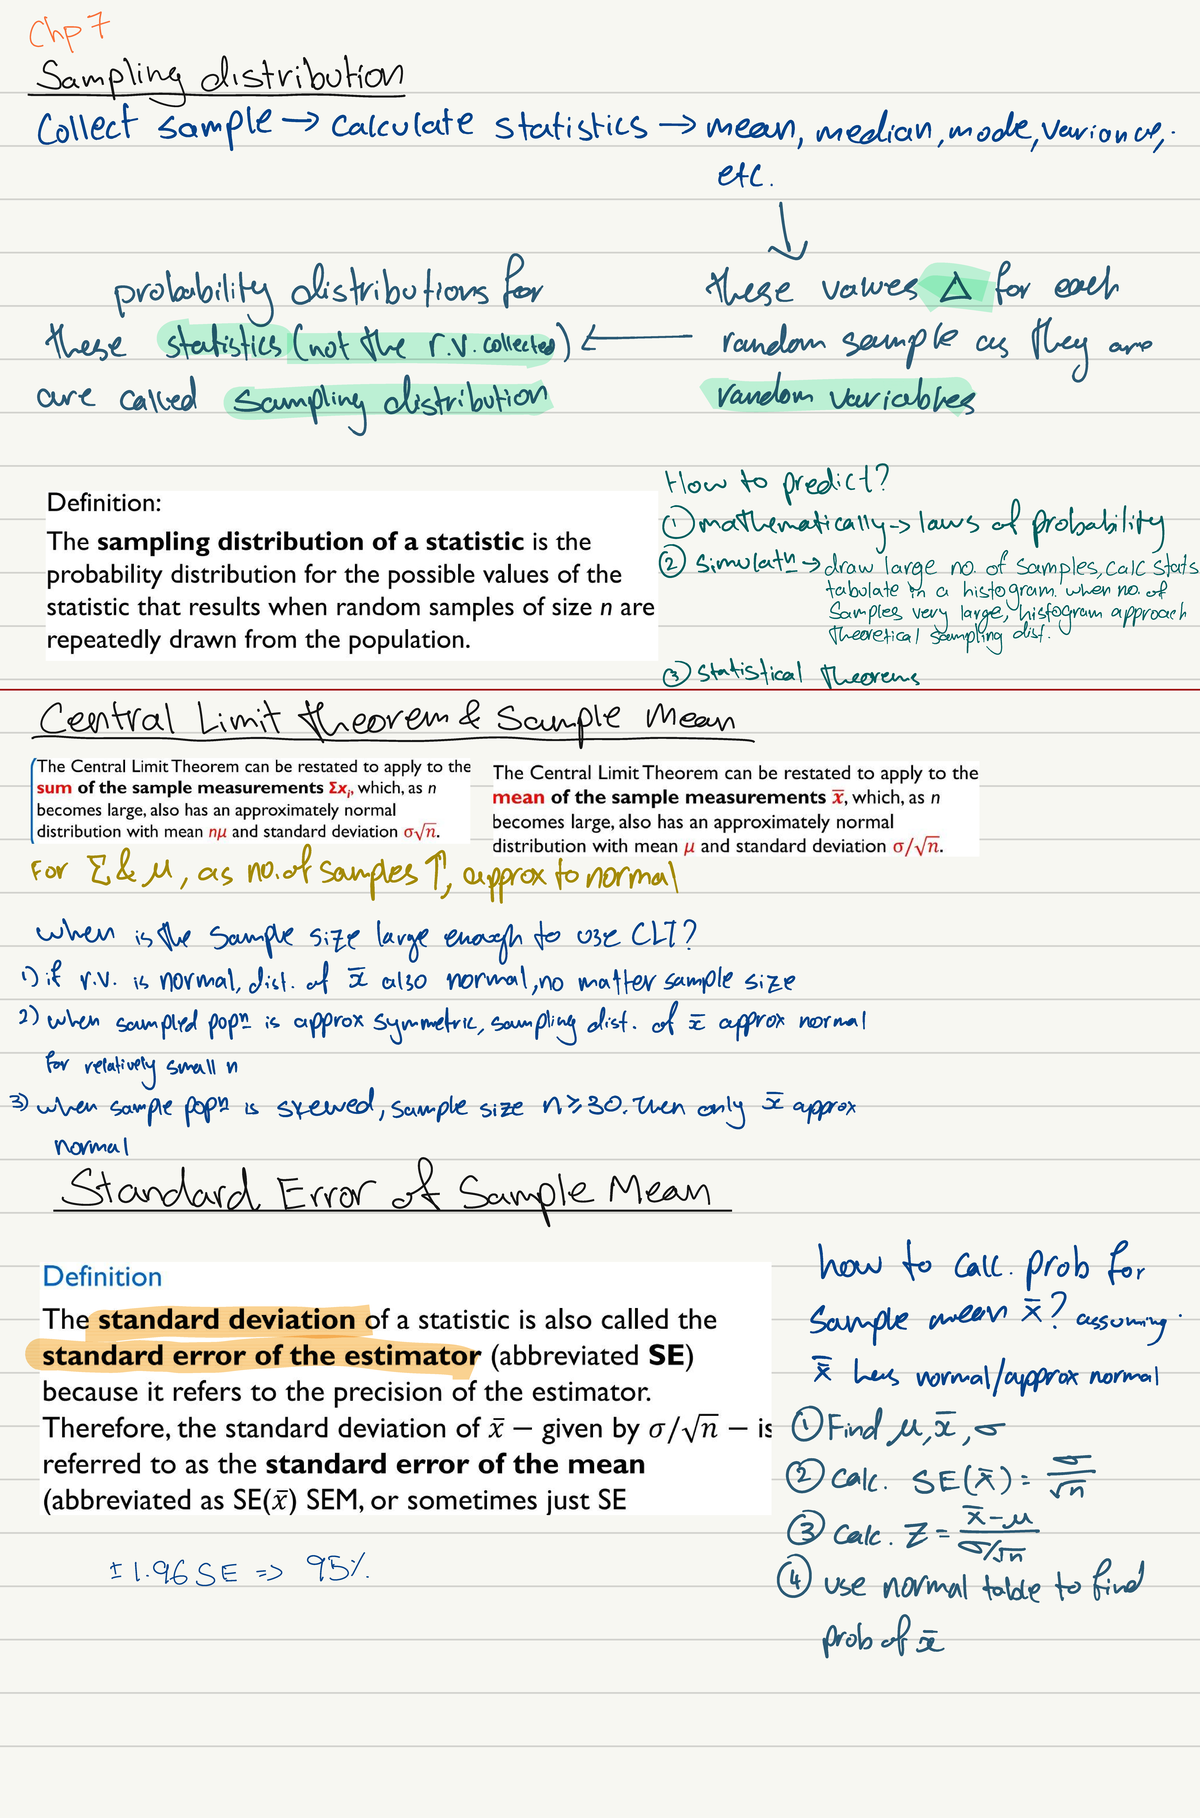 Chp 7
Sampling distribution
Collect sample → calculate statistics → mean, median, mode, variance,
etc.
↓
these values Δ for each
random sample as they are
random variables
←
probability distributions for
these statistics (not the r.v. collected)
are called sampling distribution
Definition:
The sampling distribution of a statistic is the
probability distribution for the possible values of the
statistic that results when random samples of size n are
repeatedly drawn from the population.
How to predict?
① mathematically → laws of probability
② Simulatn → draw large no. of samples, calc stats
tabulate in a histogram. when no. of
samples very large, histogram approach
theoretical sampling dist.
③ Statistical theorems
Central Limit theorem & Sample Mean
The Central Limit Theorem can be restated to apply to the
sum of the sample measurements Σxᵢ, which, as n
becomes large, also has an approximately normal
distribution with mean nμ and standard deviation σ√n.
The Central Limit Theorem can be restated to apply to the
mean of the sample measurements x̄, which, as n
becomes large, also has an approximately normal
distribution with mean μ and standard deviation σ/√n.
For Σ & μ, as no. of samples ↑, approx to normal
when is the sample size large enough to use CLT?
1) if r.v. is normal, dist. of x̄ also normal, no matter sample size
2) when sampled popn is approx symmetric, sampling dist. of x̄ approx normal
for relatively small n
3) when sample popn is skewed, sample size n ≥ 30. then only x̄ approx
normal
Standard Error of Sample Mean
Definition
The standard deviation of a statistic is also called the
standard error of the estimator (abbreviated SE)
because it refers to the precision of the estimator.
Therefore, the standard deviation of x̄ – given by σ/√n – is
referred to as the standard error of the mean
(abbreviated as SE(x̄) SEM, or sometimes just SE
± 1.96 SE => 95%
how to calc. prob for
sample mean x̄? assuming
x̄ has normal/approx normal
① Find μ, x̄, σ
② calc. SE(x̄) = σ/√n
③ calc. Z = (x̄-μ)/(σ/√n)
④ use normal table to find
prob of x̄